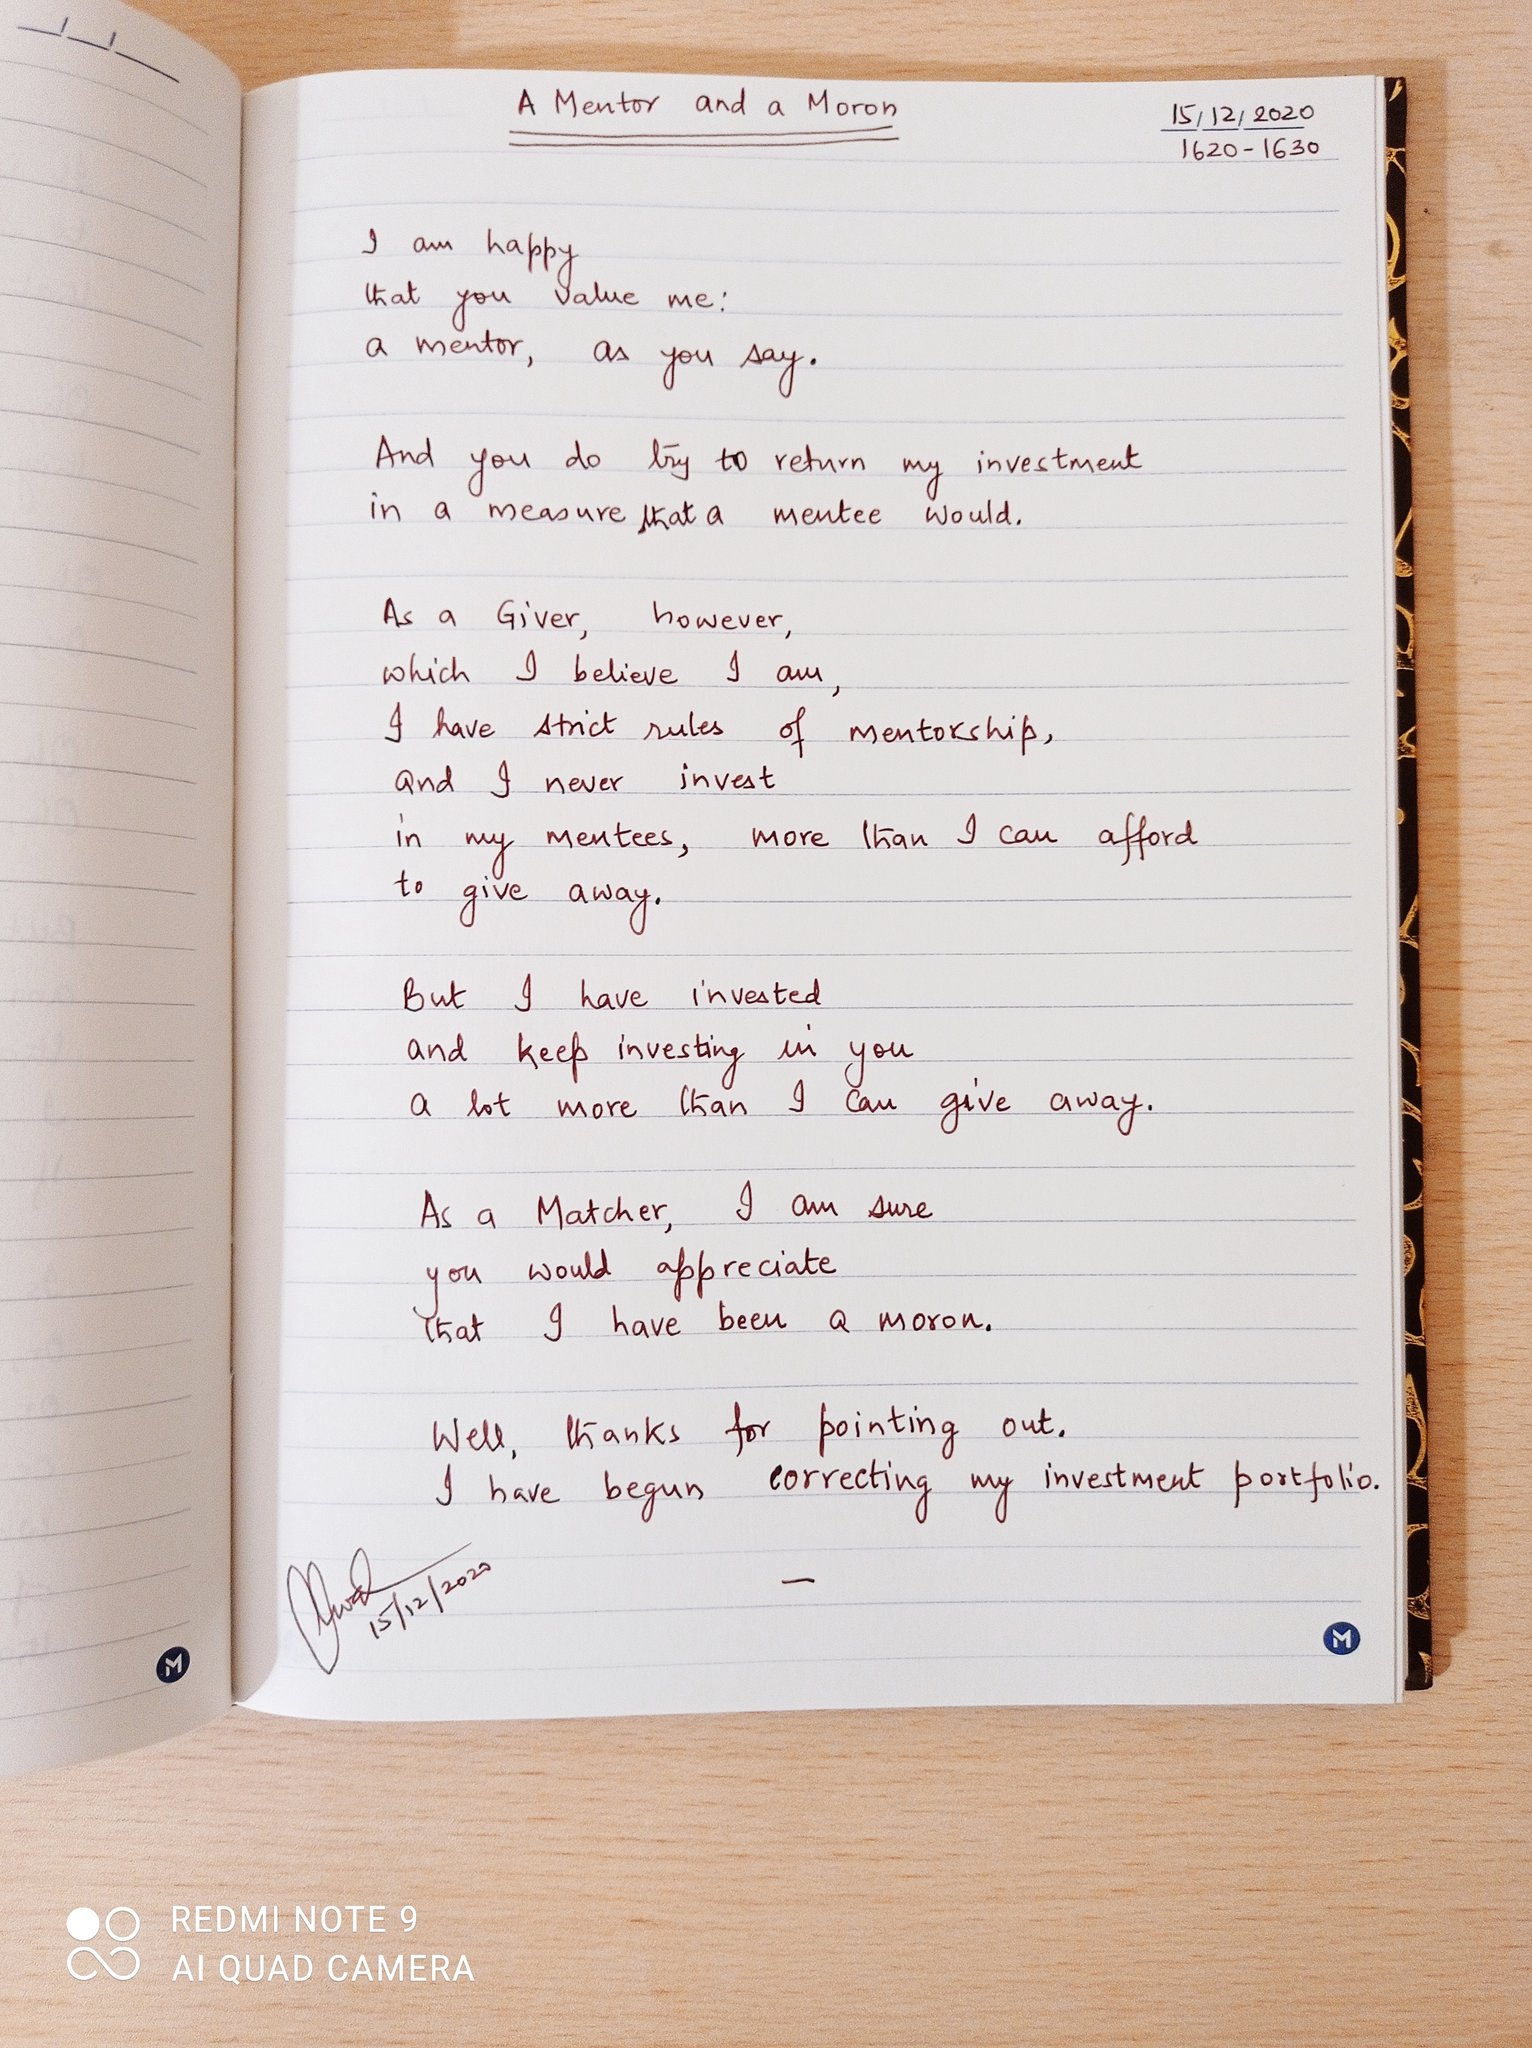 A Mentor and a Moron
15/12/2020
1620-1630
I am happy
that you value me:
a mentor, as you say.
And you do try to return my investment
in a measure that a mentee would.
As a Giver, however,
which I believe I am,
I have strict rules of mentorship,
and I never invest
in my mentees, more than I can afford
to give away.
But I have invested
and keep investing in you
a lot more than I can give away.
As a Matcher, I am sure
you would appreciate
that I have been a moron.
Well, thanks for pointing out.
I have begun correcting my investment portfolio.
15/12/2020
M
M
REDMI NOTE 9
AI QUAD CAMERA